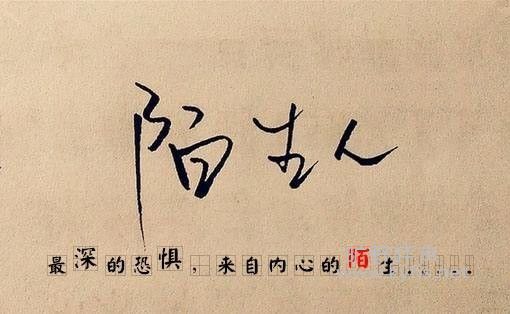 陌生人
最深的恐惧，来自内心的陌生......